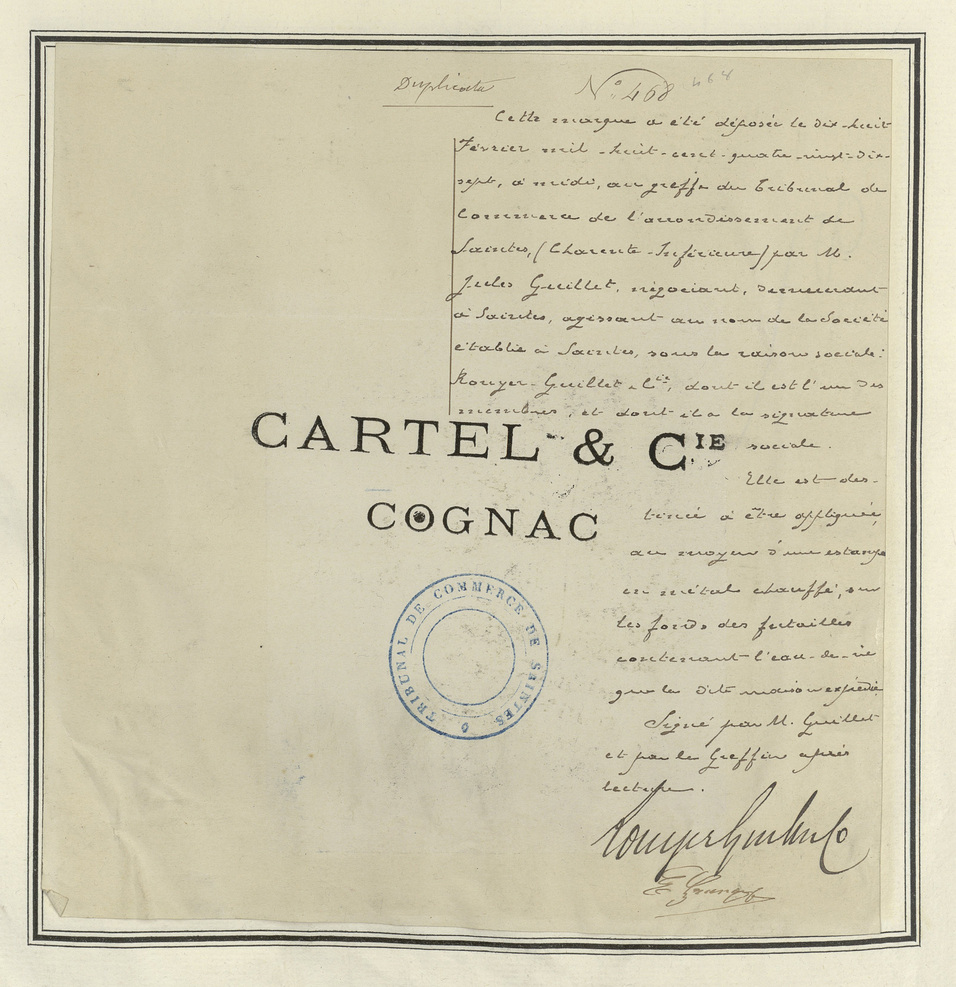 Duplicata
N° 468
468
Cette marque a été déposée le dix-huit
Février mil-huit-cent-quatre-vingt-dix-
sept, à midi, au greffe du Tribunal de
Commerce de l'arrondissement de
Saintes, (Charente-Inférieure) par M.
Jules Guillet, négociant, demeurant
à Saintes, agissant au nom de la Société
établie à Saintes, sous la raison sociale:
Rouyer-Guillet & Cie, dont il est l'un des
membres, et dont il a la signature
sociale.
CARTEL & CIE
COGNAC
Elle est des-
tinée à être appliquée,
au moyen d'une estampe
en métal chauffé, sur
les fonds des futailles
contenant l'eau-de-vie
que la dite maison expédie
Signé par M. Guillet
et par le Greffier après
lecture.
TRIBUNAL DE COMMERCE DE SAINTES
Rouyer Guillet & Co